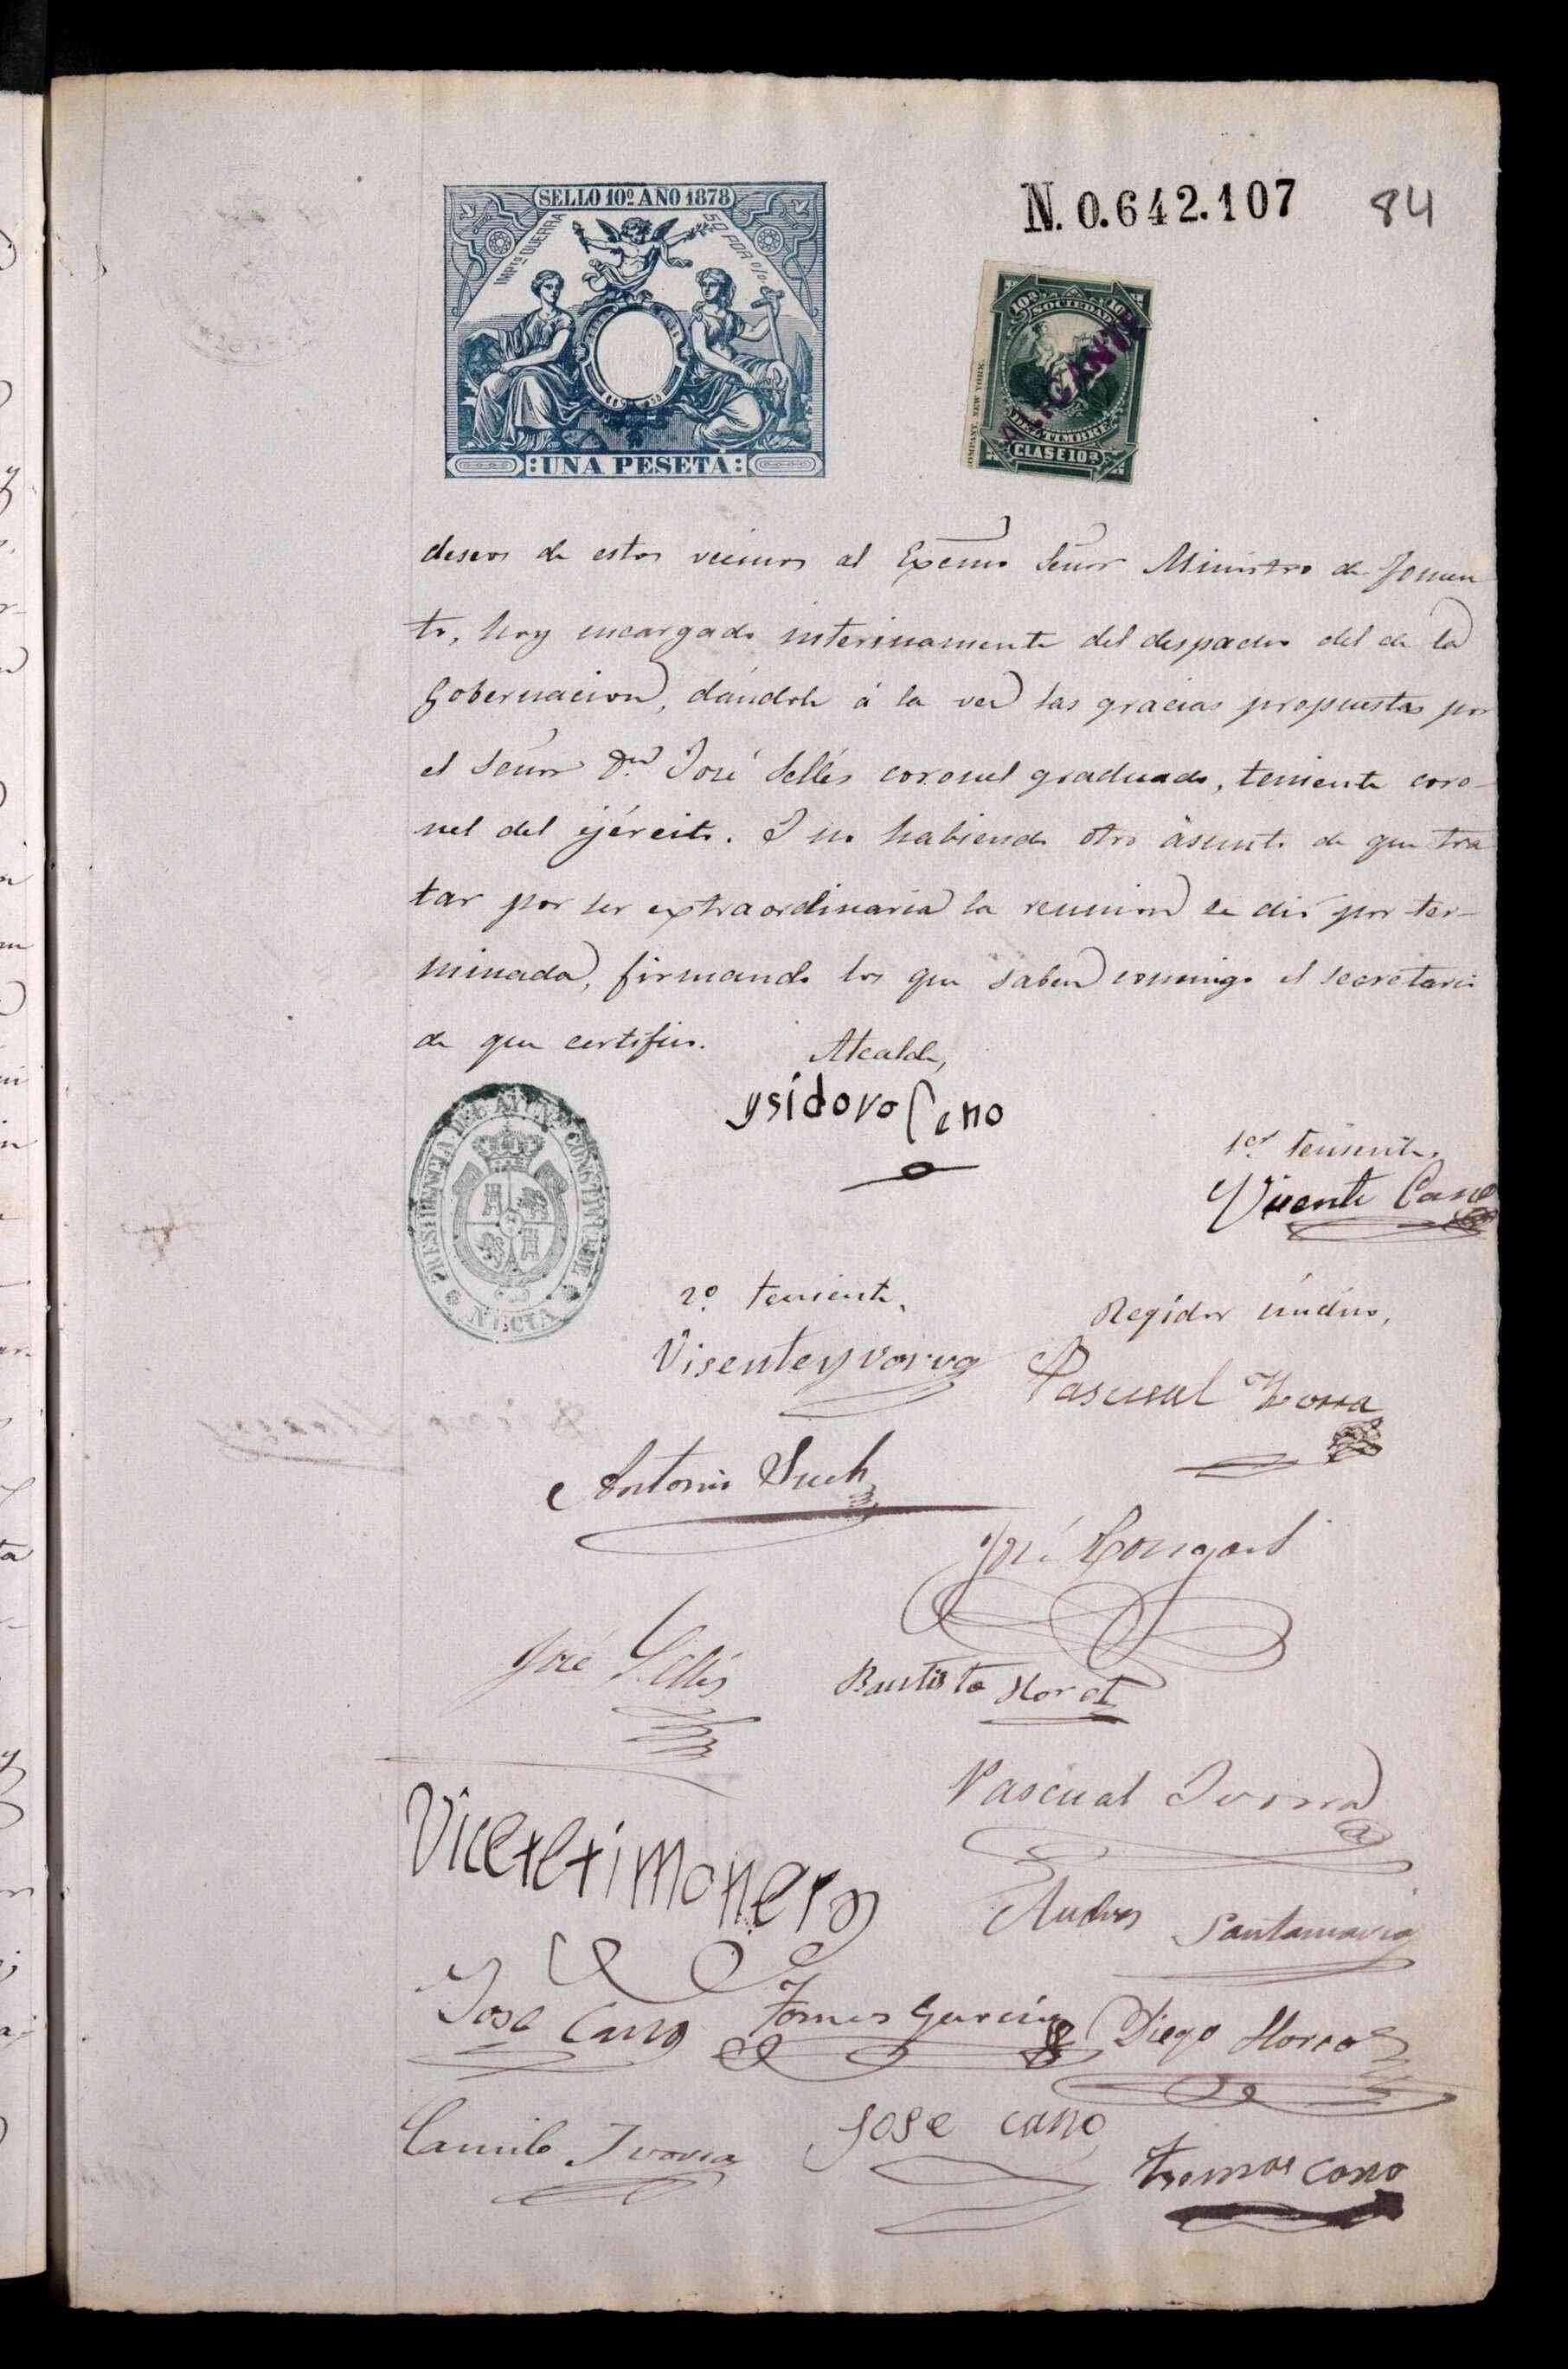 SELLO 10º AÑO 1878
IMPTO GUERRA
50 POR 0/0
UNA PESETA
N. 0.642.107
84
10ª 10ª
SOCIEDAD
DEL TIMBRE
CLASE 10ª
ALICANTE
OMPANY. NEW YORK.
deseos de estos vecinos al Excmo Señor Ministro de Fomen
to, hoy encargado interinamente del despacho del de la
Gobernacion, dándole á la vez las gracias propuestas por
el Señor Dn José Sellés coronel graduado, teniente coro-
nel del ejército. I no habiendo otro asunto de que tra
tar por ser extraordinaria la reunion se dió por ter-
minada, firmando los que saben conmigo el secretario
de que certifico.
Alcalde,
ysidoro Cano
PRESIDENCIA DEL AYUNTO CONSTITUL DE
NUCIA
1er teniente,
Vicente Cano
2º teniente,
Visente yvorra
Regidor síndico,
Pascual Ivorra
Antonio Such
José
José Sellés
Bautista Lloret
Pascual Ivorra
Andres Santamaria
Jose Cano
Tomas Garcia
Diego
Camilo Ivorra
Jose cano
Tomas cano